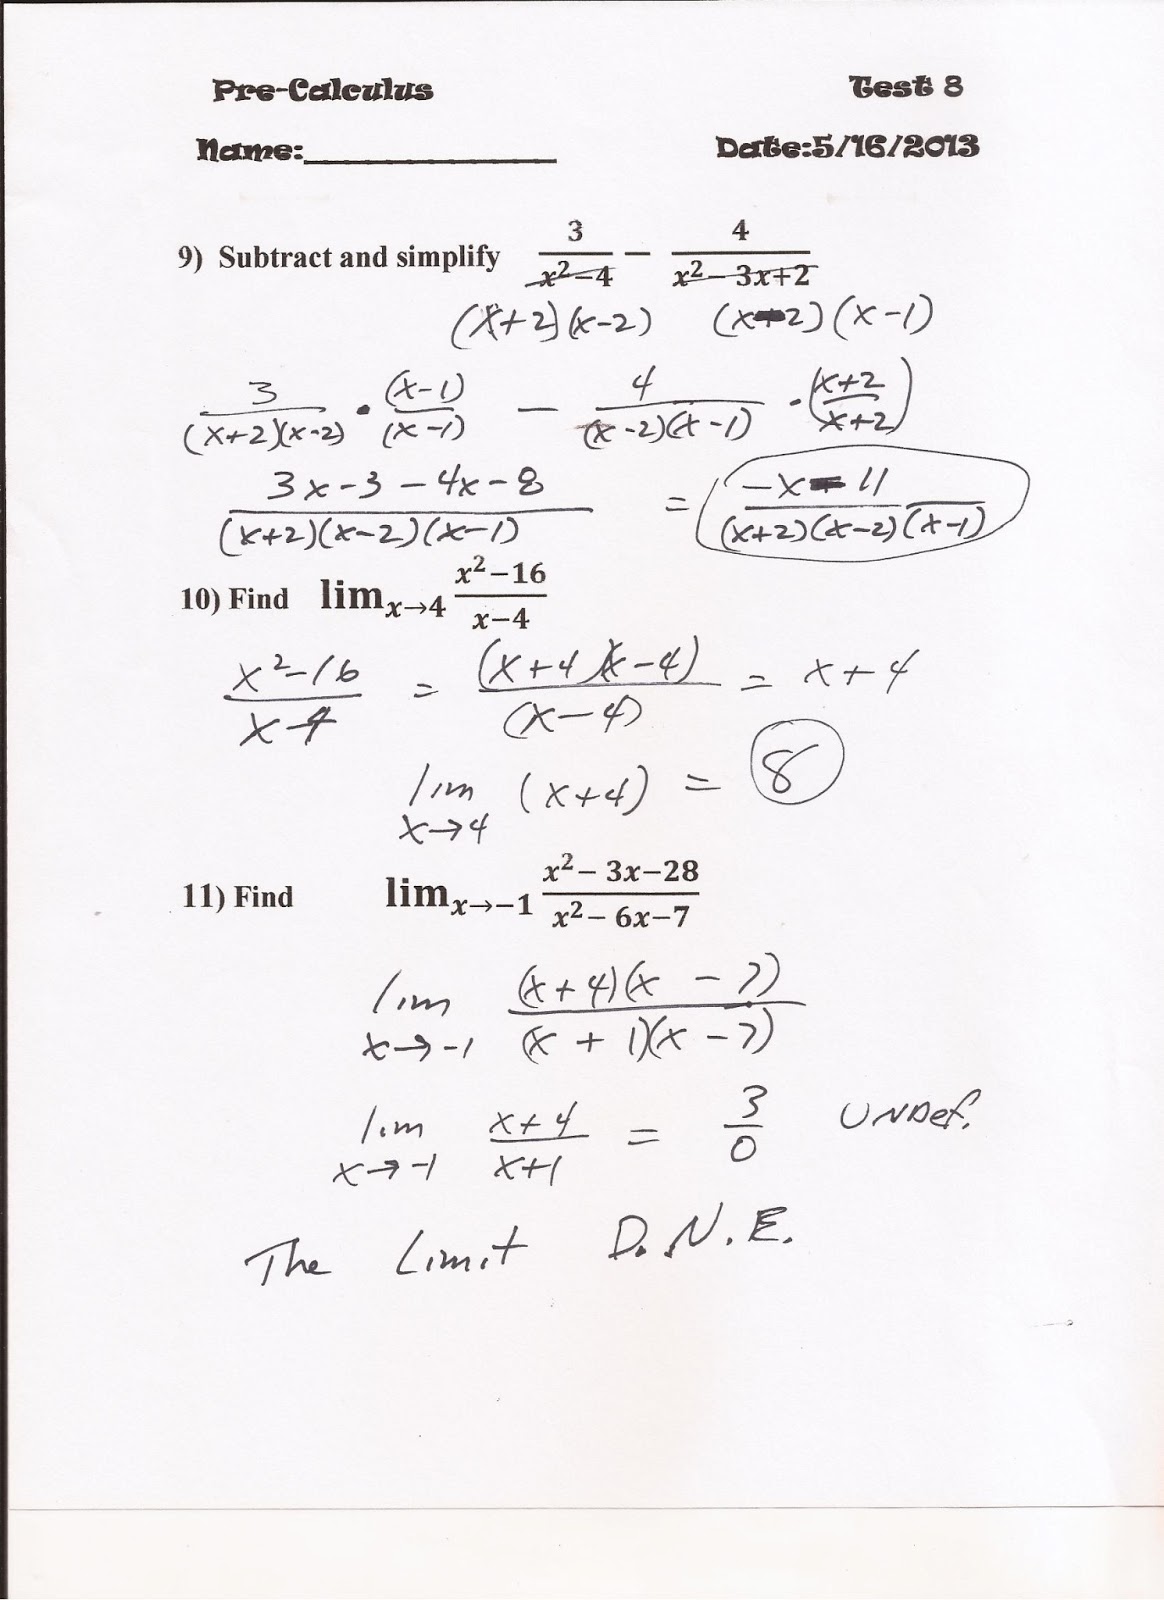 Pre-Calculus Test 8
Name:_______________ Date:5/16/2013
9) Subtract and simplify 3/(x²-4) - 4/(x²-3x+2)
(x+2)(x-2) (x-2)(x-1)
3/((x+2)(x-2)) • (x-1)/(x-1) - 4/((x-2)(x-1)) • (x+2/x+2)
(3x-3-4x-8)/((x+2)(x-2)(x-1)) = (-x-11)/((x+2)(x-2)(x-1))
10) Find lim x→4 (x²-16)/(x-4)
(x²-16)/(x-4) = ((x+4)(x-4))/(x-4) = x+4
lim x→4 (x+4) = 8
11) Find lim x→-1 (x²-3x-28)/(x²-6x-7)
lim x→-1 ((x+4)(x-7))/((x+1)(x-7))
lim x→-1 (x+4)/(x+1) = 3/0 UNDef.
The Limit D.N.E.